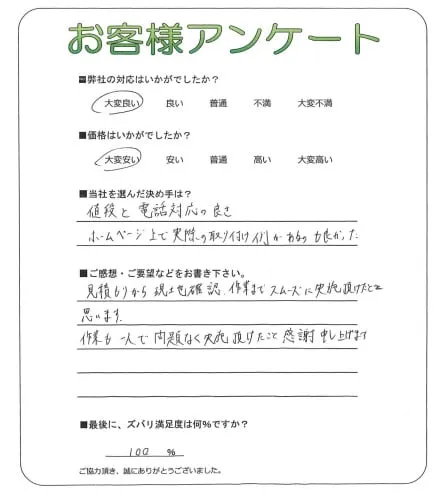 お客様アンケート
■弊社の対応はいかがでしたか?
大変良い 良い 普通 不満 大変不満
■価格はいかがでしたか?
大変安い 安い 普通 高い 大変高い
■当社を選んだ決め手は?
値段と電話対応の良さ
ホームページ上で実際の取り付け例があるのも良かった
■ご感想・ご要望などをお書き下さい。
見積もりから現地確認、作業までスムーズに実施頂けたと
思います。
作業も一人で問題なく実施頂けたこと感謝申し上げます
■最後に、ズバリ満足度は何%ですか?
100 %
ご協力頂き、誠にありがとうございました。